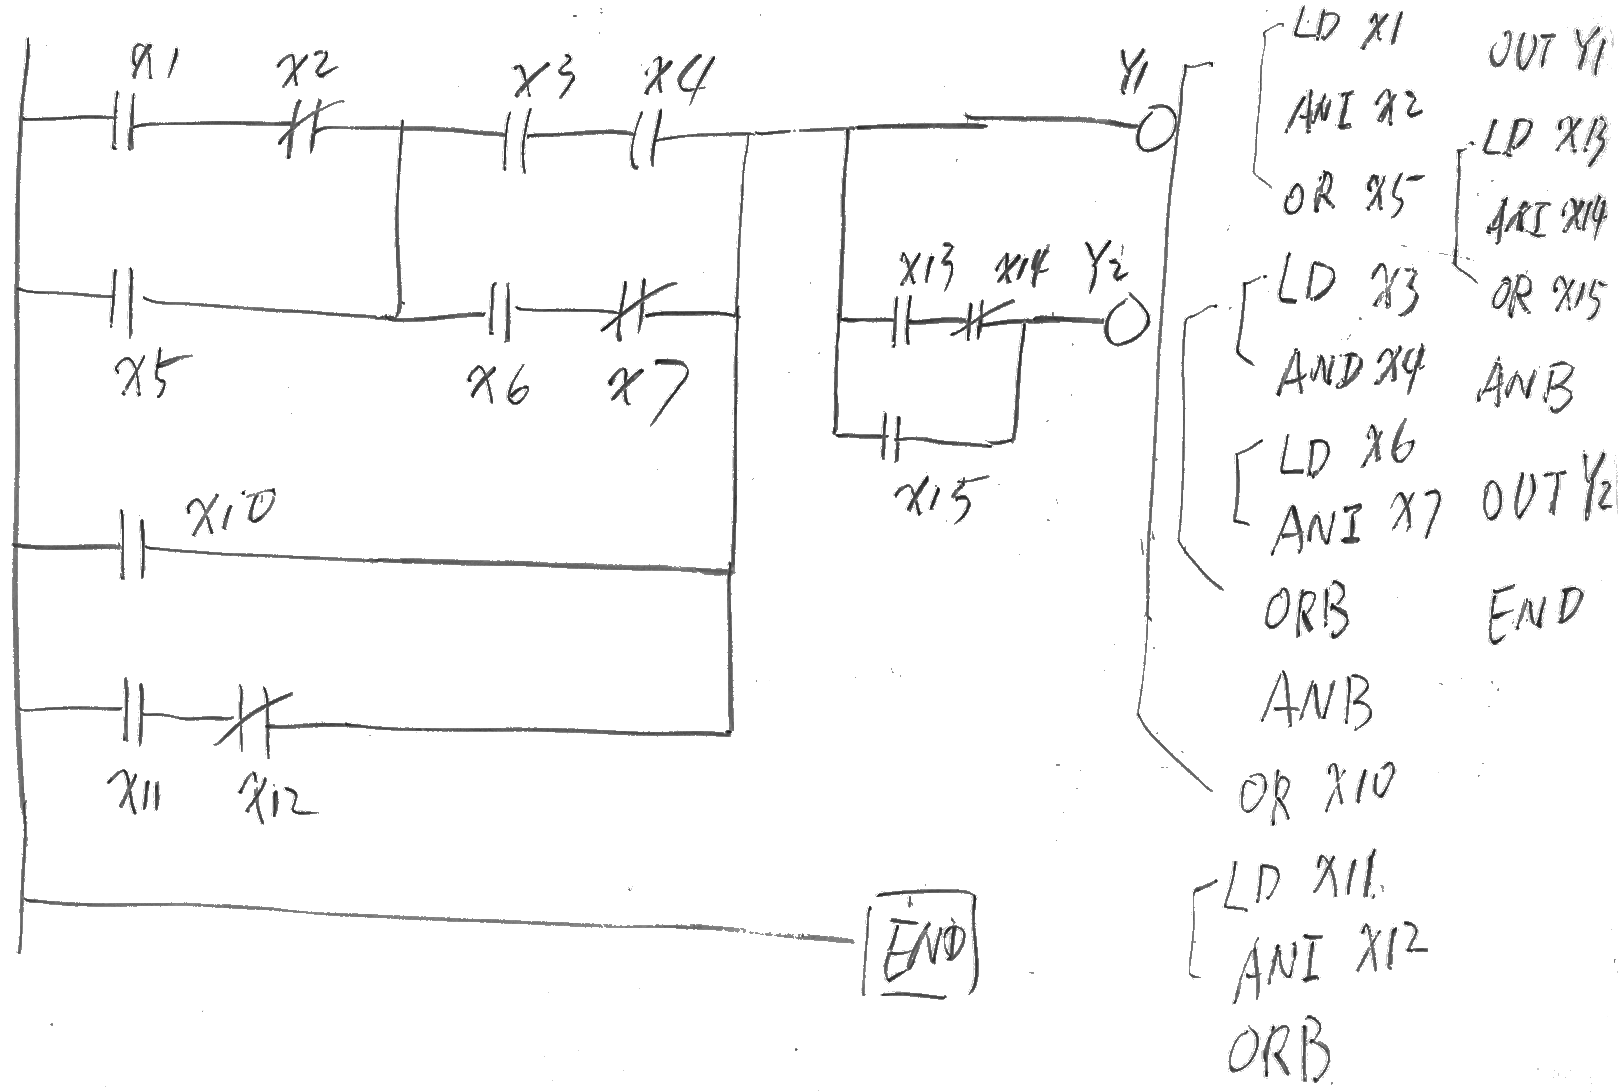 X1 X2 X3 X4 Y1
X13 X14 Y2
X5 X6 X7
X15
X10
X11 X12
END
LD X1
ANI X2
OR X5
LD X3
AND X4
LD X6
ANI X7
ORB
ANB
OR X10
LD X11
ANI X12
ORB
OUT Y1
LD X13
ANI X14
OR X15
ANB
OUT Y2
END